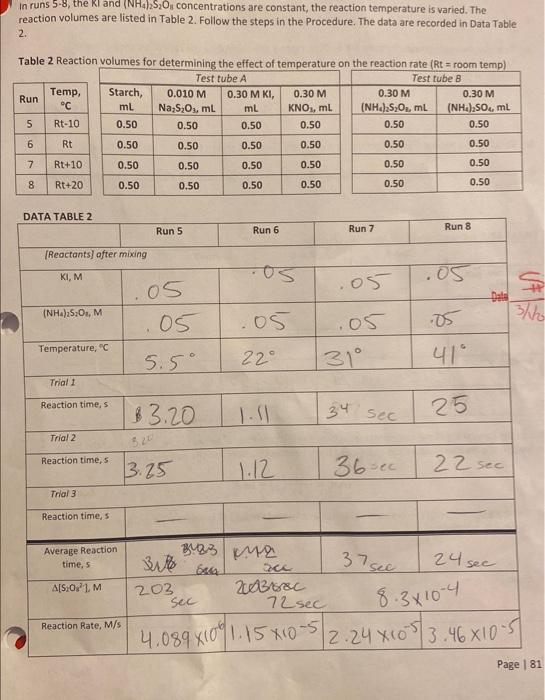 In runs 5-8, the KI and (NH₄)₂S₂O₈ concentrations are constant, the reaction temperature is varied. The
reaction volumes are listed in Table 2. Follow the steps in the Procedure. The data are recorded in Data Table
2.
Table 2 Reaction volumes for determining the effect of temperature on the reaction rate (Rt = room temp)
Test tube A Test tube B
Run Temp, °C Starch, mL 0.010 M Na₂S₂O₃, mL 0.30 M KI, mL 0.30 M KNO₃, mL 0.30 M (NH₄)₂S₂O₈, mL 0.30 M (NH₄)₂SO₄, mL
5 Rt-10 0.50 0.50 0.50 0.50 0.50 0.50
6 Rt 0.50 0.50 0.50 0.50 0.50 0.50
7 Rt+10 0.50 0.50 0.50 0.50 0.50 0.50
8 Rt+20 0.50 0.50 0.50 0.50 0.50 0.50
DATA TABLE 2
Run 5 Run 6 Run 7 Run 8
[Reactants] after mixing
KI, M .05 .05 .05 .05
Date
(NH₄)₂S₂O₈, M .05 .05 .05 .05
Temperature, °C 5.5° 22° 31° 41°
Trial 1
Reaction time, s 3.20 1.11 34 sec 25
Trial 2 3.20
Reaction time, s 3.25 1.12 36 sec 22 sec
Trial 3
Reaction time, s — — — —
Average Reaction time, s 37 sec 24 sec
Δ[S₂O₈²⁻], M 203 sec 72 sec 8.3x10⁻⁴
Reaction Rate, M/s 4.089 x10⁻⁶ 1.15 x10⁻⁵ 2.24 x10⁻⁵ 3.46 x10⁻⁵
Page | 81